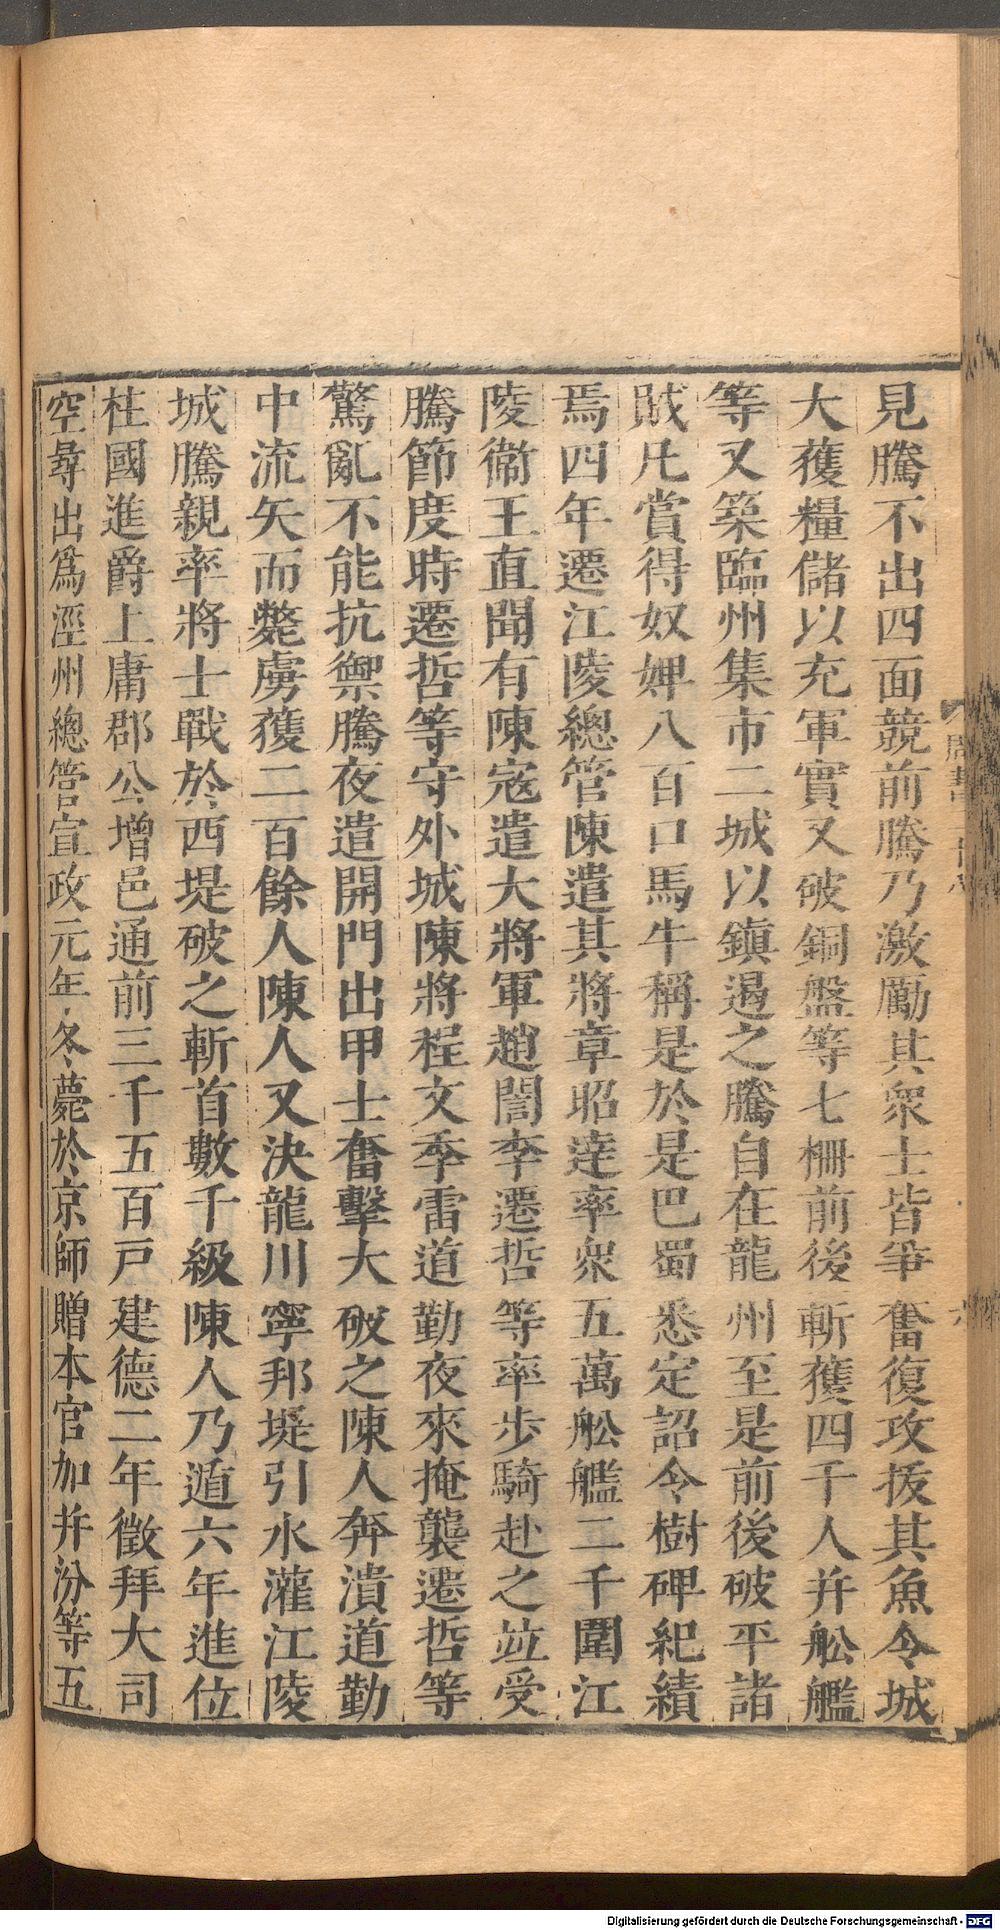 見騰不出四面競前騰乃激勵其衆士皆爭奮復攻拔其魚令城
大獲糧儲以充軍實又破銅盤等七柵前後斬獲四千人并舩艦
等又築臨州集市二城以鎮遏之騰自在龍州至是前後破平諸
賊凡賞得奴婢八百口馬牛稱是於是巴蜀悉定詔令樹碑紀績
焉四年遷江陵總管陳遣其將章昭達率衆五萬舩艦二千圍江
陵衞王直聞有陳寇遣大將軍趙誾李遷哲等率步騎赴之竝受
騰節度時遷哲等守外城陳將程文季雷道勤夜來掩襲遷哲等
驚亂不能抗禦騰夜遣開門出甲士奮擊大破之陳人奔潰道勤
中流矢而斃虜獲二百餘人陳人又決龍川寧邦堤引水灌江陵
城騰親率將士戰於西堤破之斬首數千級陳人乃遁六年進位
柱國進爵上庸郡公增邑通前三千五百戸建德二年徵拜大司
空尋出爲涇州總管宣政元年冬薨於京師贈本官加并汾等五
周書
Digitalisierung gefördert durch die Deutsche Forschungsgemeinschaft - DFG